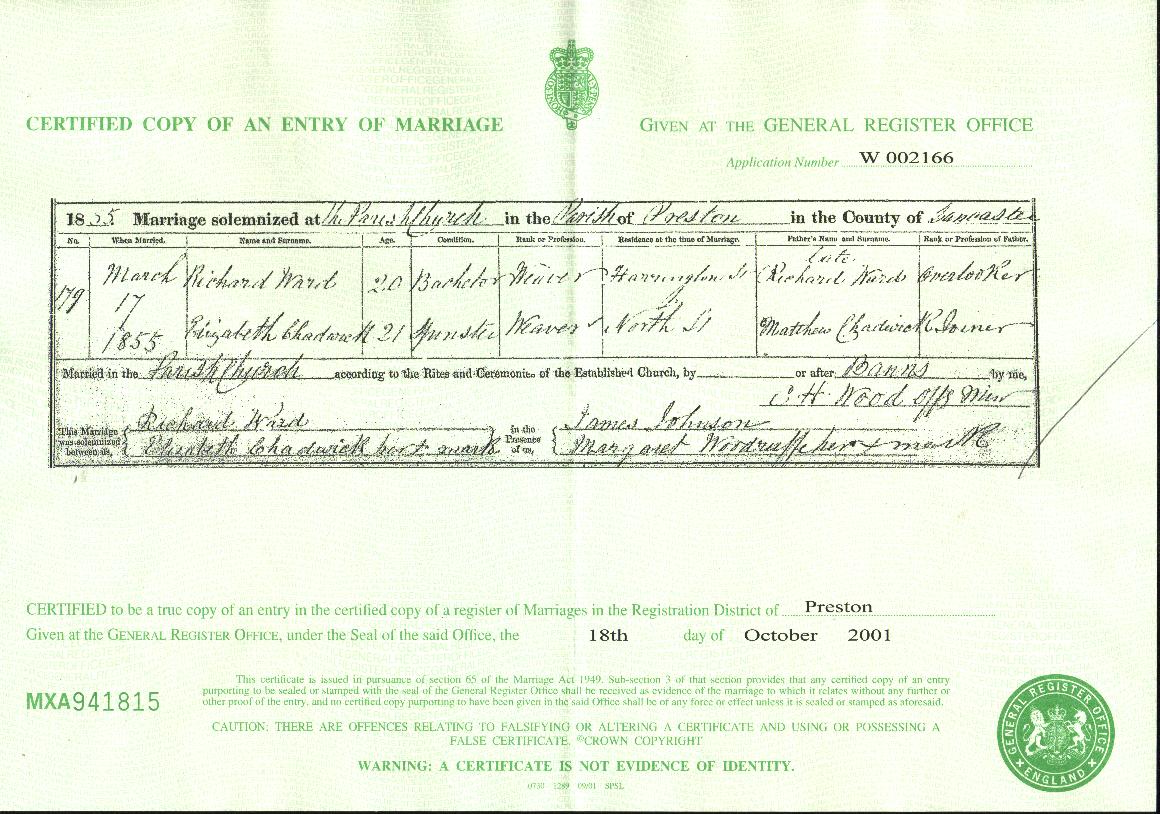 CERTIFIED COPY OF AN ENTRY OF MARRIAGE
GIVEN AT THE GENERAL REGISTER OFFICE
Application Number W 002166
1855 Marriage solemnized at Parish Church in the Parish of Preston in the County of Lancaster
No. When Married. Name and Surname. Age. Condition. Rank or Profession. Residence at the time of Marriage. Father's Name and Surname. Rank or Profession of Father.
179 March 17 1855
Richard Ward 20 Bachelor Weaver Harrington St late Richard Ward Overlooker
Elizabeth Chadwick 21 Weaver North St Matthew Chadwick Joiner
Married in the Parish Church according to the Rites and Ceremonies of the Established Church, by or after Banns by me,
Wood
This Marriage was solemnized between us, Richard Ward
Elizabeth Chadwick mark
in the Presence of us, James Johnson
Margaret Woodruff her x mark
CERTIFIED to be a true copy of an entry in the certified copy of a register of Marriages in the Registration District of Preston
Given at the GENERAL REGISTER OFFICE, under the Seal of the said Office, the 18th day of October 2001
MXA941815
This certificate is issued in pursuance of section 65 of the Marriage Act 1949. Sub-section 3 of that section provides that any certified copy of an entry
purporting to be sealed or stamped with the seal of the General Register Office shall be received as evidence of the marriage to which it relates without any further or
other proof of the entry, and no certified copy purporting to have been given in the said Office shall be of any force or effect unless it is sealed or stamped as aforesaid.
CAUTION: THERE ARE OFFENCES RELATING TO FALSIFYING OR ALTERING A CERTIFICATE AND USING OR POSSESSING A
FALSE CERTIFICATE. ©CROWN COPYRIGHT
WARNING: A CERTIFICATE IS NOT EVIDENCE OF IDENTITY.
GENERAL REGISTER OFFICE
ENGLAND